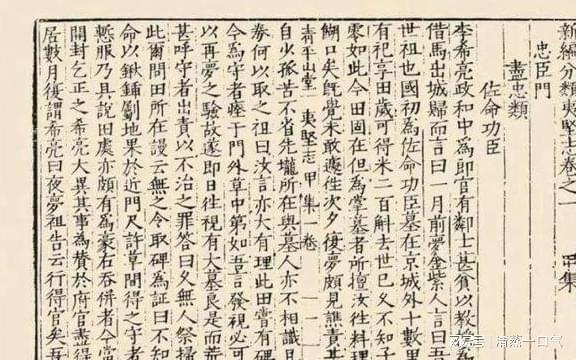 新編分類夷堅志卷之一 甲集
忠臣門
盡忠類
佐命功臣
李希亮政和中為郎官有鄰士甚貧以教
借馬出城歸而言曰一月前夢金紫人言曰吾
世祖也國初為佐命功臣墓在京城外十數里
有祀享田歲可得米二百斛去世已久不知子
零如此今田固在但為掌墓者所擅汝往料理
餬口矣旣覺未敢遽往次夕復夢頗見譙責其
青平山堂 夷堅志 甲集 卷一 一
自少孤苦不省先壠所在與墓人亦不相識且
券何以取之祖曰汝言亦大有理此田嘗有碑
令為守者瘞于門外草中第如吾言發視必可
以再夢之驗故遂卽日往視有大墓良是而荒
甚呼守者出責以不治之罪答曰久無人祭掃
此爾問田所在謾云無之令取碑為証曰不知
命以鍬鋪劚地果於近門尺許草間得之守者
慙服乃具說田處亦頗有為豪右吞併者今當
開封乞正之希亮大異其事為贊於府官盡得
居數月復謂希亮曰夜夢祖告云行得官矣吾
清蒸十口气